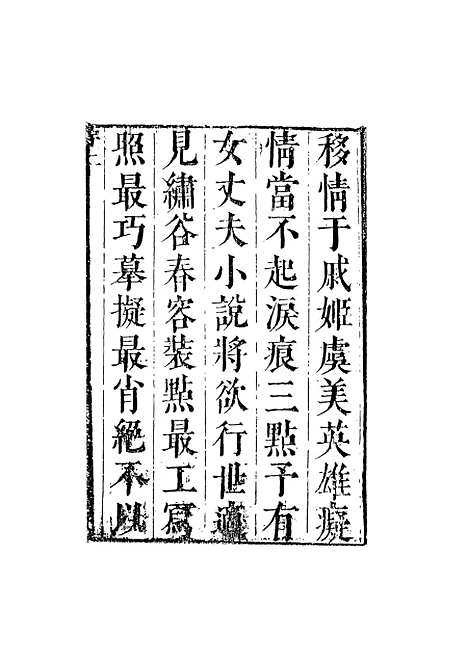 移情于戚姬虞美英雄癡
情當不起淚痕三點予有
女丈夫小說將欲行世適
見繡谷春容裝點最工寫
照最巧摹擬最肖絕不以